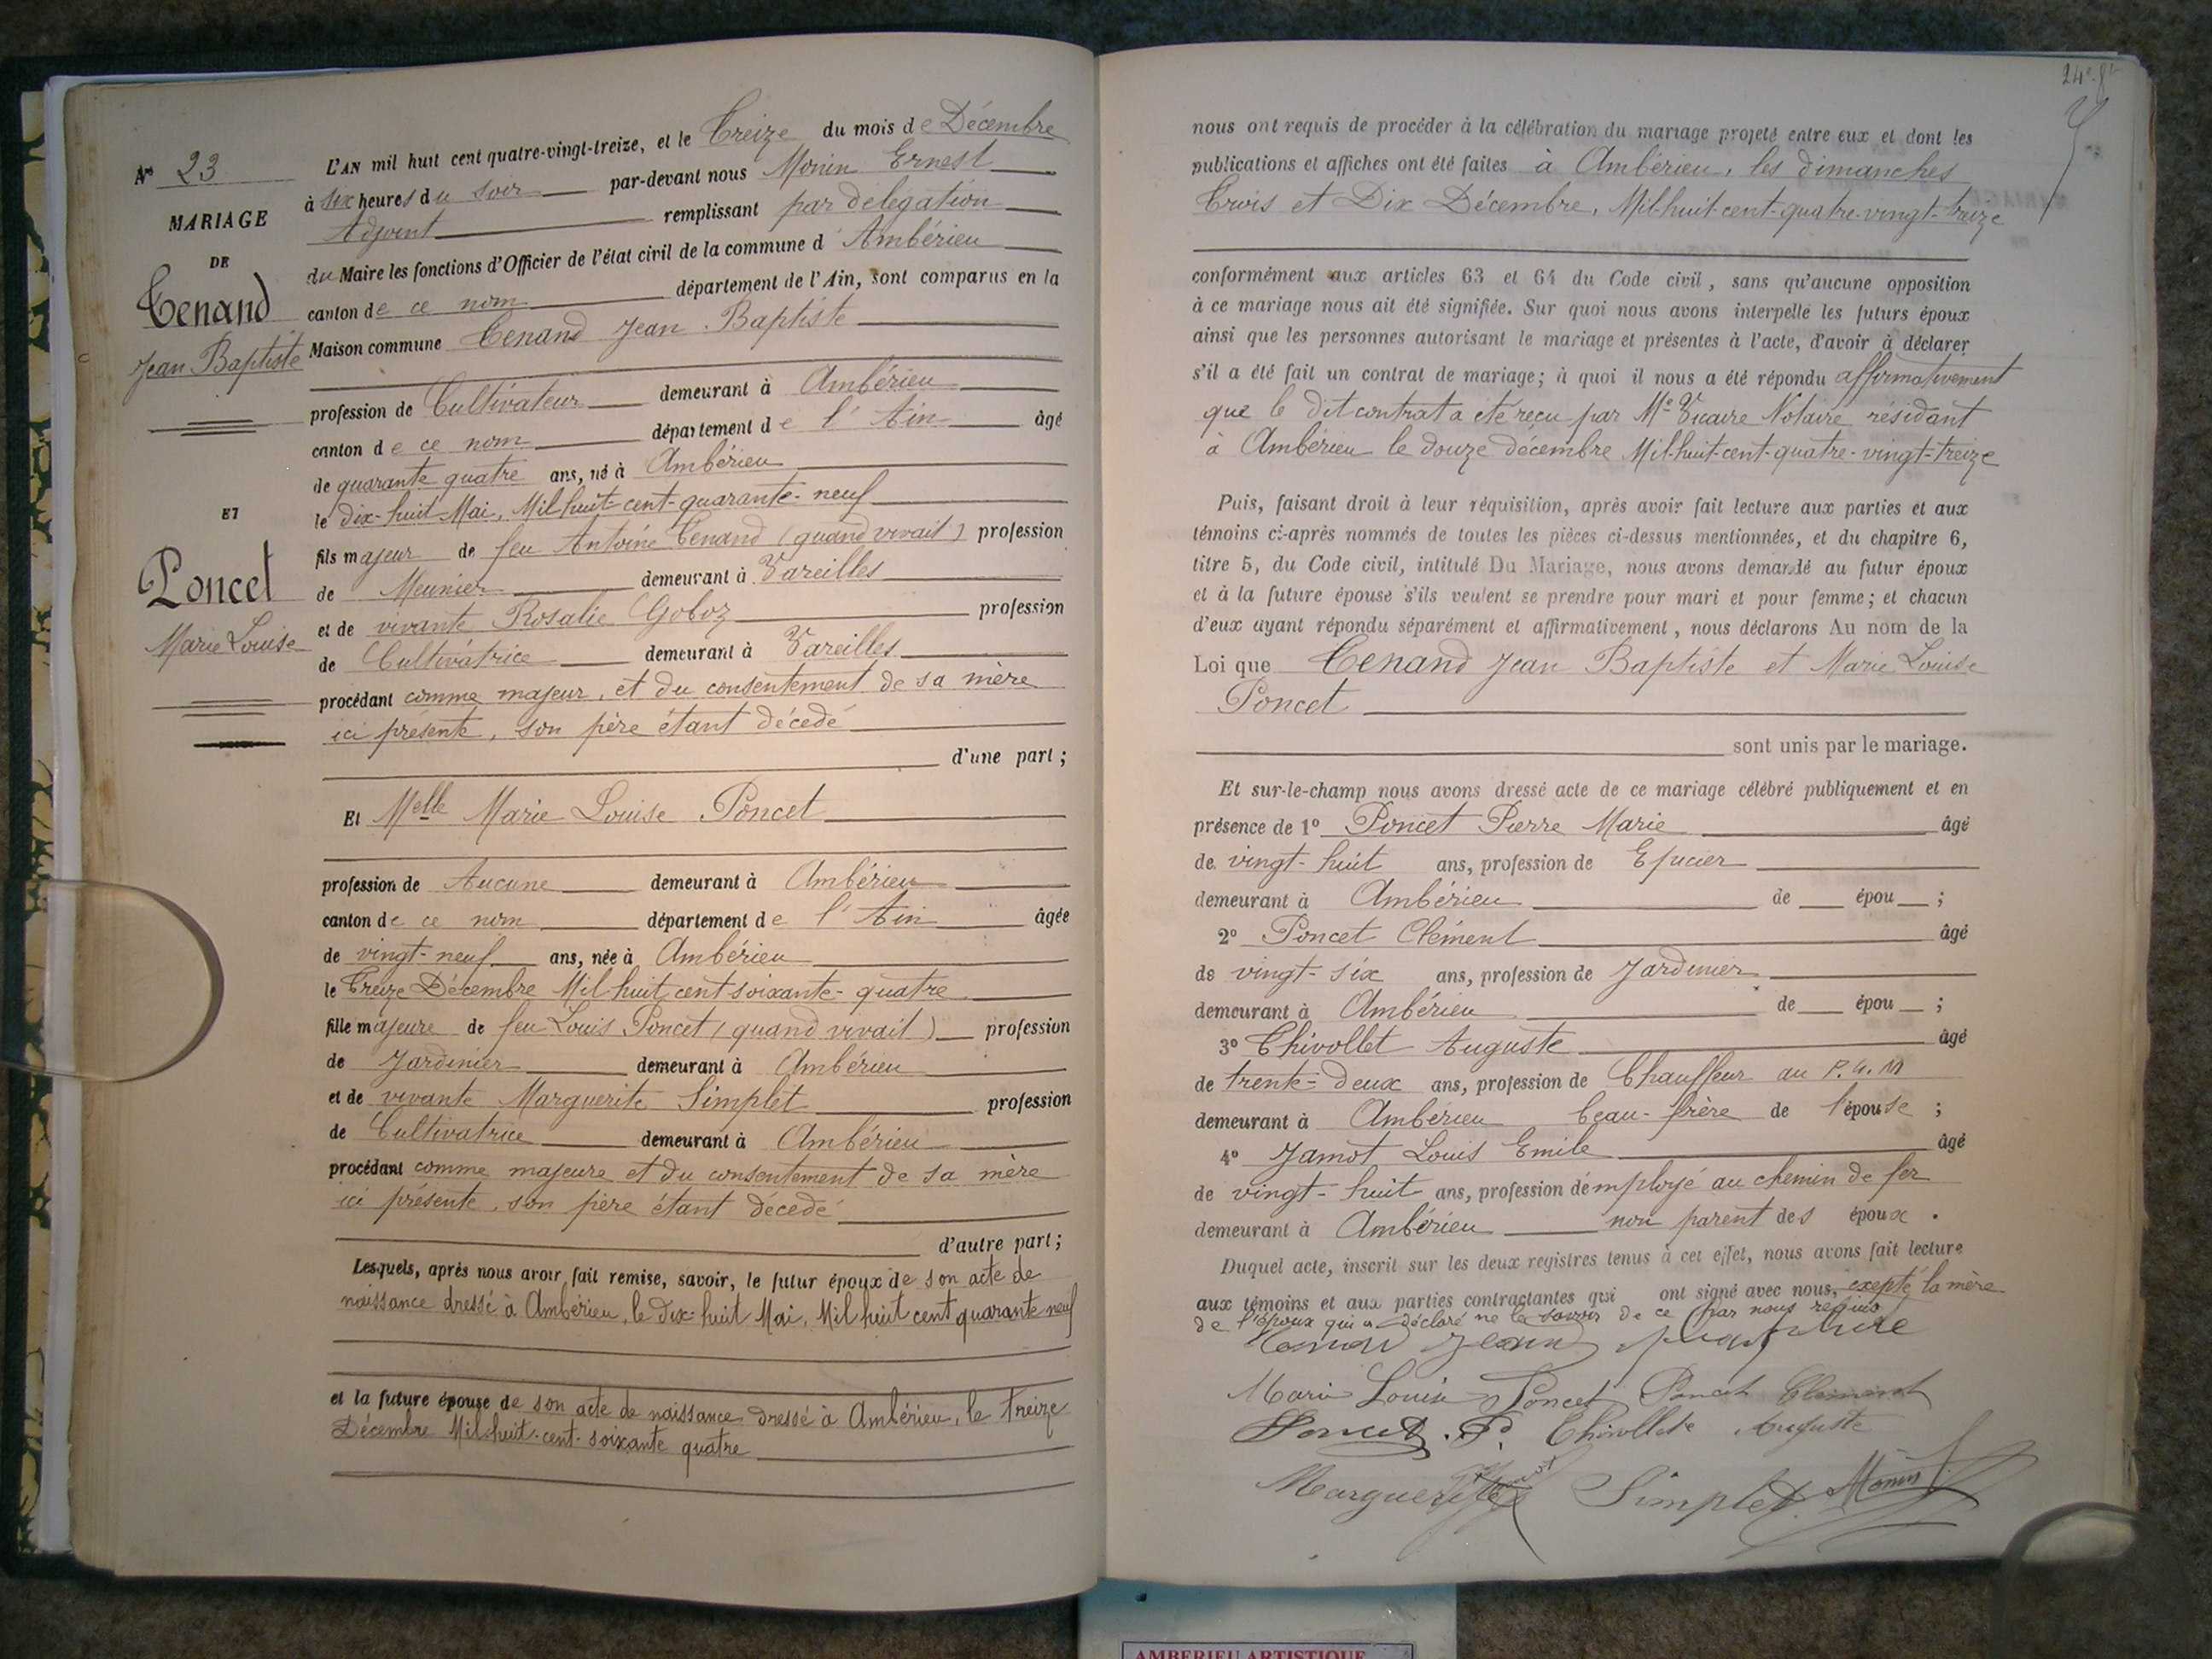 N° 23
MARIAGE
DE
Tenand
Jean Baptiste
ET
Poncet
Marie Louise
L'AN mil huit cent quatre-vingt-treize, et le Treize du mois de Décembre
à six heures du soir par-devant nous Monin Ernest
Adjoint remplissant par délégation
du Maire les fonctions d'Officier de l'état civil de la commune d'Ambérieu
canton de ce nom département de l'Ain, sont comparus en la
Maison commune Tenand Jean Baptiste
profession de Cultivateur demeurant à Ambérieu
canton de ce nom département de l'Ain âgé
de quarante quatre ans, né à Ambérieu
le dix-huit Mai, Mil-huit-cent-quarante-neuf
fils majeur de feu Antoine Tenand (quand vivait) profession
de Meunier demeurant à Vareilles
et de vivante Rosalie Goboz profession
de Cultivatrice demeurant à Vareilles
procédant comme majeur, et du consentement de sa mère
ici présente, son père étant décédé
d'une part ;
Et Melle Marie Louise Poncet
profession de Aucune demeurant à Ambérieu
canton de ce nom département de l'Ain âgée
de vingt-neuf ans, née à Ambérieu
le Treize Décembre Mil huit cent soixante-quatre
fille majeure de feu Louis Poncet (quand vivait) profession
de Jardinier demeurant à Ambérieu
et de vivante Marguerite Simplet profession
de Cultivatrice demeurant à Ambérieu
procédant comme majeure et du consentement de sa mère
ici présente, son père étant décédé
d'autre part ;
Lesquels, après nous avoir fait remise, savoir, le futur époux de son acte de
naissance dressé à Ambérieu, le dix-huit Mai, Mil huit cent quarante neuf
et la future épouse de son acte de naissance dressé à Ambérieu, le treize
Décembre Mil-huit-cent-soixante quatre
nous ont requis de procéder à la célébration du mariage projeté entre eux et dont les
publications et affiches ont été faites à Ambérieu, les dimanches
Trois et Dix Décembre, Mil-huit-cent-quatre-vingt-treize
conformément aux articles 63 et 64 du Code civil, sans qu'aucune opposition
à ce mariage nous ait été signifiée. Sur quoi nous avons interpellé les futurs époux
ainsi que les personnes autorisant le mariage et présentes à l'acte, d'avoir à déclarer
s'il a été fait un contrat de mariage; à quoi il nous a été répondu affirmativement
que le dit contrat a été reçu par Me Vicaire Notaire résidant
à Ambérieu le douze décembre Mil-huit-cent-quatre-vingt-treize
Puis, faisant droit à leur réquisition, après avoir fait lecture aux parties et aux
témoins ci-après nommés de toutes les pièces ci-dessus mentionnées, et du chapitre 6,
titre 5, du Code civil, intitulé Du Mariage, nous avons demandé au futur époux
et à la future épouse s'ils veulent se prendre pour mari et pour femme; et chacun
d'eux ayant répondu séparément et affirmativement, nous déclarons Au nom de la
Loi que Tenand Jean Baptiste et Marie Louise
Poncet
sont unis par le mariage.
Et sur-le-champ nous avons dressé acte de ce mariage célébré publiquement et en
présence de 1° Poncet Pierre Marie âgé
de vingt-huit ans, profession de Epicier
demeurant à Ambérieu de épou ;
2° Poncet Clément âgé
de vingt-six ans, profession de Jardinier
demeurant à Ambérieu de épou ;
3° Chivollet Auguste âgé
de trente-deux ans, profession de Chauffeur au P.L.M
demeurant à Ambérieu beau-frère de l'épouse ;
4° Jamot Louis Emile âgé
de vingt-huit ans, profession d'employé au chemin de fer
demeurant à Ambérieu non parent des époux .
Duquel acte, inscrit sur les deux registres tenus à cet effet, nous avons fait lecture
aux témoins et aux parties contractantes qui ont signé avec nous, exepté la mère
de l'époux qui a déclaré ne le savoir de ce par nous requis
Tenand Jean
Marie Louise Poncet Poncet Clément
Poncet . P. Chivollet Auguste
Marguerite Simplet Monin
AMBERIEU ARTISTIQUE